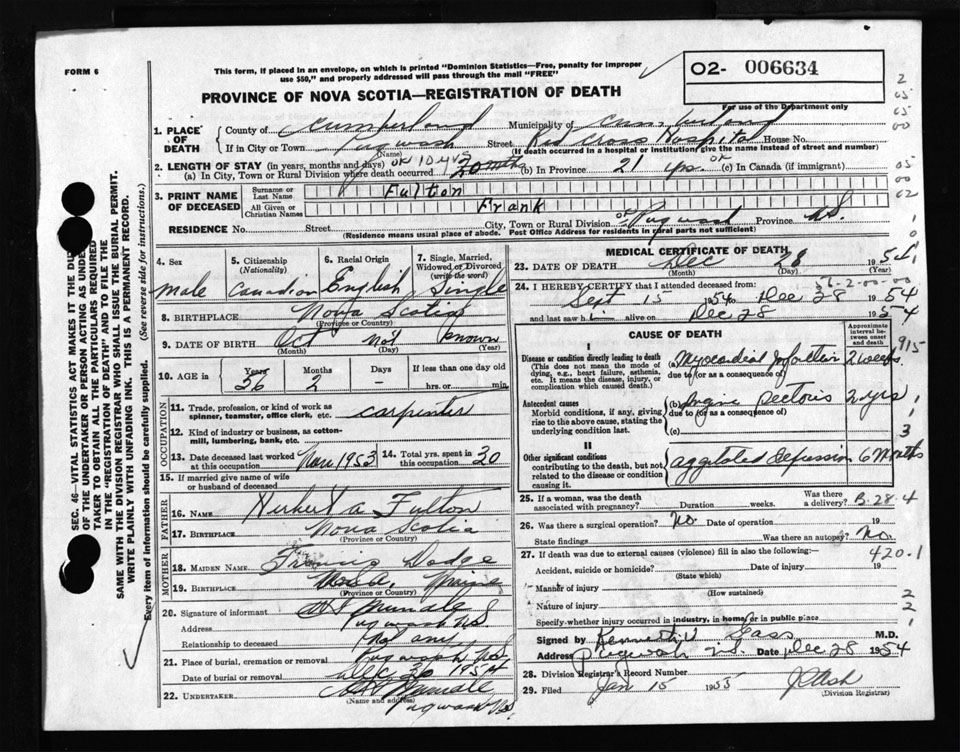 FORM 6
This form, if placed in an envelope, on which is printed "Dominion Statistics—Free, penalty for improper
use $50," and properly addressed will pass through the mail "FREE"
O2- 006634
PROVINCE OF NOVA SCOTIA—REGISTRATION OF DEATH
For use of the Department only
1. PLACE OF DEATH
County of Cumberland Municipality of
If in City or Town Pugwash Street Red Cross Hospital House No.
(Name) (If death occurred in a hospital or institution give the name instead of street and number)
2. LENGTH OF STAY (in years, months and days)
(a) In City, Town or Rural Division where death occurred (b) In Province 21 yrs. (c) In Canada (if immigrant)
3. PRINT NAME OF DECEASED
Surname or Last Name Fulton
All Given or Christian Names Frank
RESIDENCE No. Street City, Town or Rural Division Pugwash Province NS
(Residence means usual place of abode. Post Office Address for residents in rural parts not sufficient)
4. Sex Male
5. Citizenship (Nationality) Canadian
6. Racial Origin English
7. Single, Married, Widowed or Divorced (write the word) Single
8. BIRTHPLACE Nova Scotia
(Province or Country)
9. DATE OF BIRTH Oct not known
(Month) (Day) (Year)
10. AGE in Years 56 Months 2 Days – If less than one day old
hrs. or min.
OCCUPATION
11. Trade, profession, or kind of work as spinner, teamster, office clerk, etc. carpenter
12. Kind of industry or business, as cotton-mill, lumbering, bank, etc.
13. Date deceased last worked at this occupation Nov 1953
14. Total yrs. spent in this occupation 30
15. If married give name of wife or husband of deceased
FATHER
16. NAME Herbert A Fulton
17. BIRTHPLACE Nova Scotia
(Province or Country)
MOTHER
18. MAIDEN NAME Dodge
19. BIRTHPLACE
(Province or Country)
20. Signature of informant
Address Pugwash NS
Relationship to deceased Not any
21. Place of burial, cremation or removal Pugwash NS
Date of burial or removal Dec 30 1954
22. UNDERTAKER
(Name and address)
Pugwash NS
MEDICAL CERTIFICATE OF DEATH
23. DATE OF DEATH Dec 28 1954
(Month) (Day) (Year)
24. I HEREBY CERTIFY that I attended deceased from:
Sept 15 1954 to Dec 28 1954
and last saw h i alive on Dec 28 1954
CAUSE OF DEATH
Approximate interval between onset and death
I
Disease or condition directly leading to death
(This does not mean the mode of dying, e.g., heart failure, asthenia, etc. It means the disease, injury, or complication which caused death.)
(a) Myocardial Infarction 2 weeks
due to (or as a consequence of)
Antecedent causes
Morbid conditions, if any, giving rise to the above cause, stating the underlying condition last.
(b) Angina Pectoris 2 yrs
due to (or as a consequence of)
(c)
II
Other significant conditions
contributing to the death, but not related to the disease or condition causing it.
aggitated depression 6 months
25. If a woman, was the death associated with pregnancy? Duration weeks. Was there a delivery?
B-28-4
26. Was there a surgical operation? No. Date of operation 19
State findings Was there an autopsy? No.
27. If death was due to external causes (violence) fill in also the following:—
420.1
Accident, suicide or homicide? Date of injury 19
(State which)
Manner of injury
(How sustained)
Nature of injury
Specify whether injury occurred in industry, in home, or in public place
Signed by Kenneth V Gass M.D.
Address Pugwash N.S. Date Dec 28 1954
28. Division Registrar's Record Number
29. Filed Jan 15 1955
(Division Registrar)
SEC. 46—VITAL STATISTICS ACT MAKES IT THE DU
OF THE UNDERTAKER OR PERSON ACTING AS UNDER
TAKER TO OBTAIN ALL THE PARTICULARS REQUIRED
IN THE "REGISTRATION OF DEATH" AND TO FILE THE
SAME WITH THE DIVISION REGISTRAR WHO SHALL ISSUE THE BURIAL PERMIT.
WRITE PLAINLY WITH UNFADING INK. THIS IS A PERMANENT RECORD.
Every item of information should be carefully supplied. (See reverse side for instructions.)